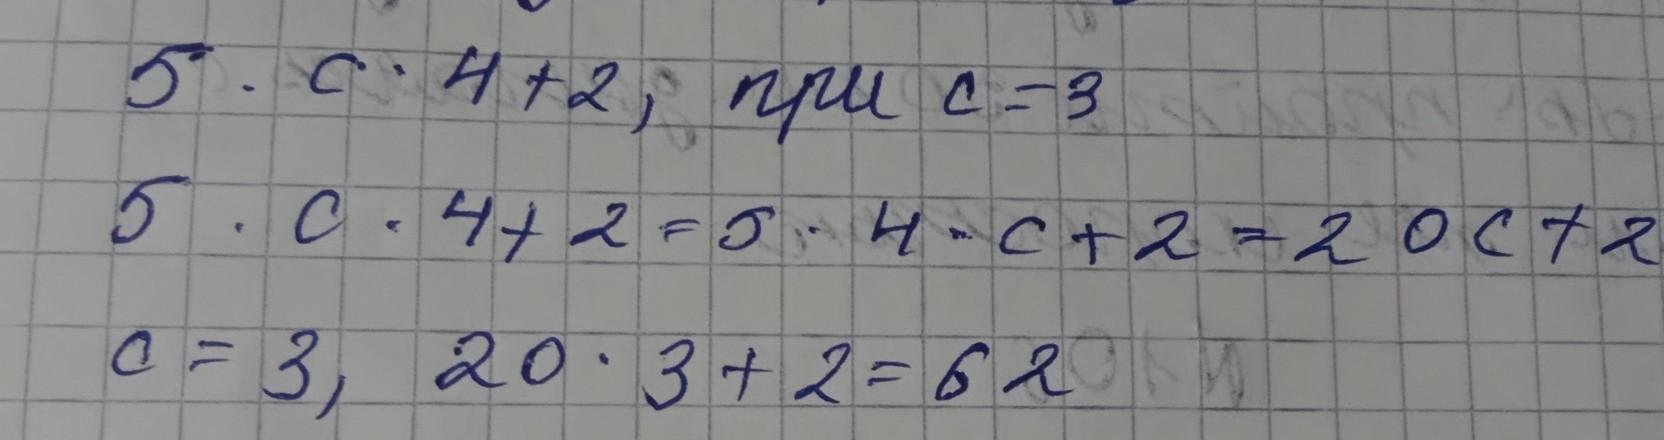 5 · c · 4 + 2, при c = 3
5 · c · 4 + 2 = 5 · 4 · c + 2 = 20c + 2
c = 3, 20 · 3 + 2 = 62